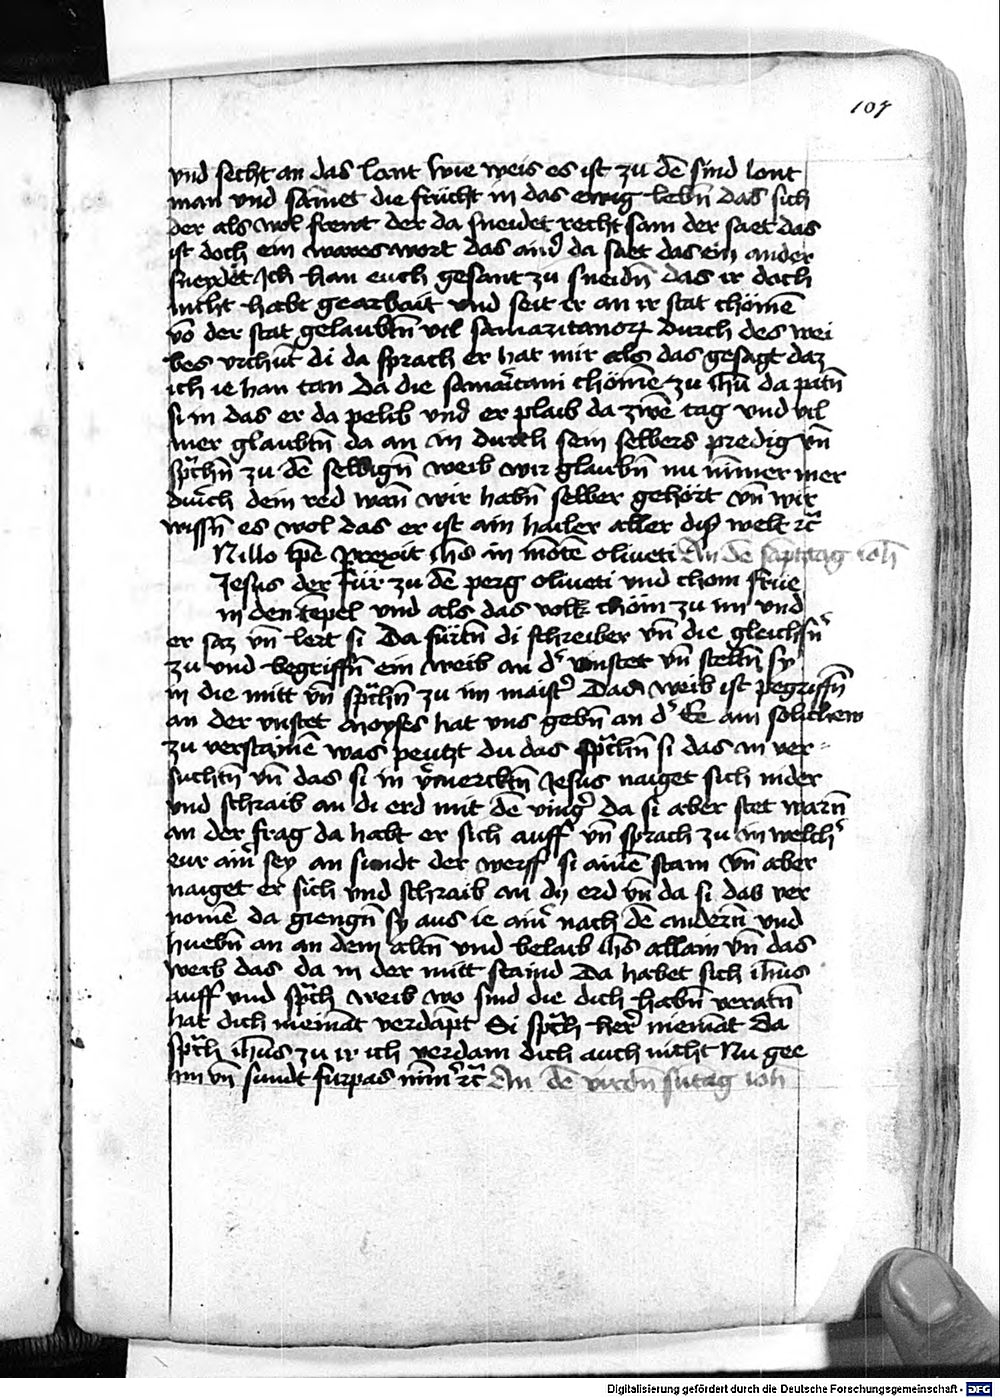 107
vnd secht an das lant wie weis es ist zu dē snid lont
man vnd sāmet die frücht in das ewig lebn̄ das sich
der als wol frewt der da sneidet recht sam der saet das
ist doch ein wares wort das and̕ da saet das ein ander
sneydet Ich han euch gesant zu sneidn̄ das ir doch
nicht habt gearbait vnd seit ir an ir stat chömē
vō der stat gelaubtn̄ vil samaritanorꝝ durch des wei
bes vrchūt di da sprach er hat mir als das gesagt daz
ich ie han tan Da die samaritani chömē zu ihū da patn̄
si in das er da pelib vnd er plaib da zwē tag vnd vil
mer glaubtn̄ da an in durch sein selbers predig vn̄
sp̄chn̄ zu dē selbign̄ weib wir glaubn̄ nu nīmer mer
durch dein red wan̄ wir habn̄ selber gehört vn̄ wir
wissn̄ es wol das er ist ain hailer aller diß welt ꝛc̄
Nillo tp̄e Prexit ihs in mōtē oliueti An dē sāptztag ioh̄
Jesus der für zu dē perg oliueti vnd chom frue
in den tēpel vnd als das volk chöm zu im vnd
er saz vn̄ lert si Da fürtn̄ di schreiber vn̄ die gleichsn̄
zu vnd begriffn̄ ein weib an d̕ vnstet vn̄ steltn̄ sy
in die mitt vn̄ sp̄chn̄ zu im maist̕ Das weib ist pegriffn̄
an der vnstet Moyses hat vns gebn̄ an d̕ Ee ain solichew
zu verstainē was peutzt du das sp̄chn̄ si das in ver-
suchtn̄ vn̄ das si in v̕mercktn̄ Jesus naiget sich nider
vnd schraib an di erd mit dē ving̕ da si aber stet warn̄
an der frag da habt er sich auff vn̄ sprach zu in welch̕
eur ain̕ sey an sundt der werff si ainē stain vn̄ aber
naiget er sich vnd schraib an dy erd vn̄ da si das ver
nomē da giengn̄ sy aus ie ain̕ nach dē andern̄ vnd
huebn̄ an an dem altn̄ vnd belaib ihs allain vn̄ das
weib das da in der mitt staind Da habet sich ihus
auff vnd sp̄ch weib wo sind die dich habn̄ veratn̄
hat dich niemāt verdāpt Si sp̄ch her̕ niemāt Da
sp̄ch ihus zu ir ich verdam dich auch nicht Nu gee
hin vn̄ sundt furpas nim̕ ꝛc̄ An dē virdn̄ sūtag ioh̄
Digitalisierung gefördert durch die Deutsche Forschungsgemeinschaft - DFG